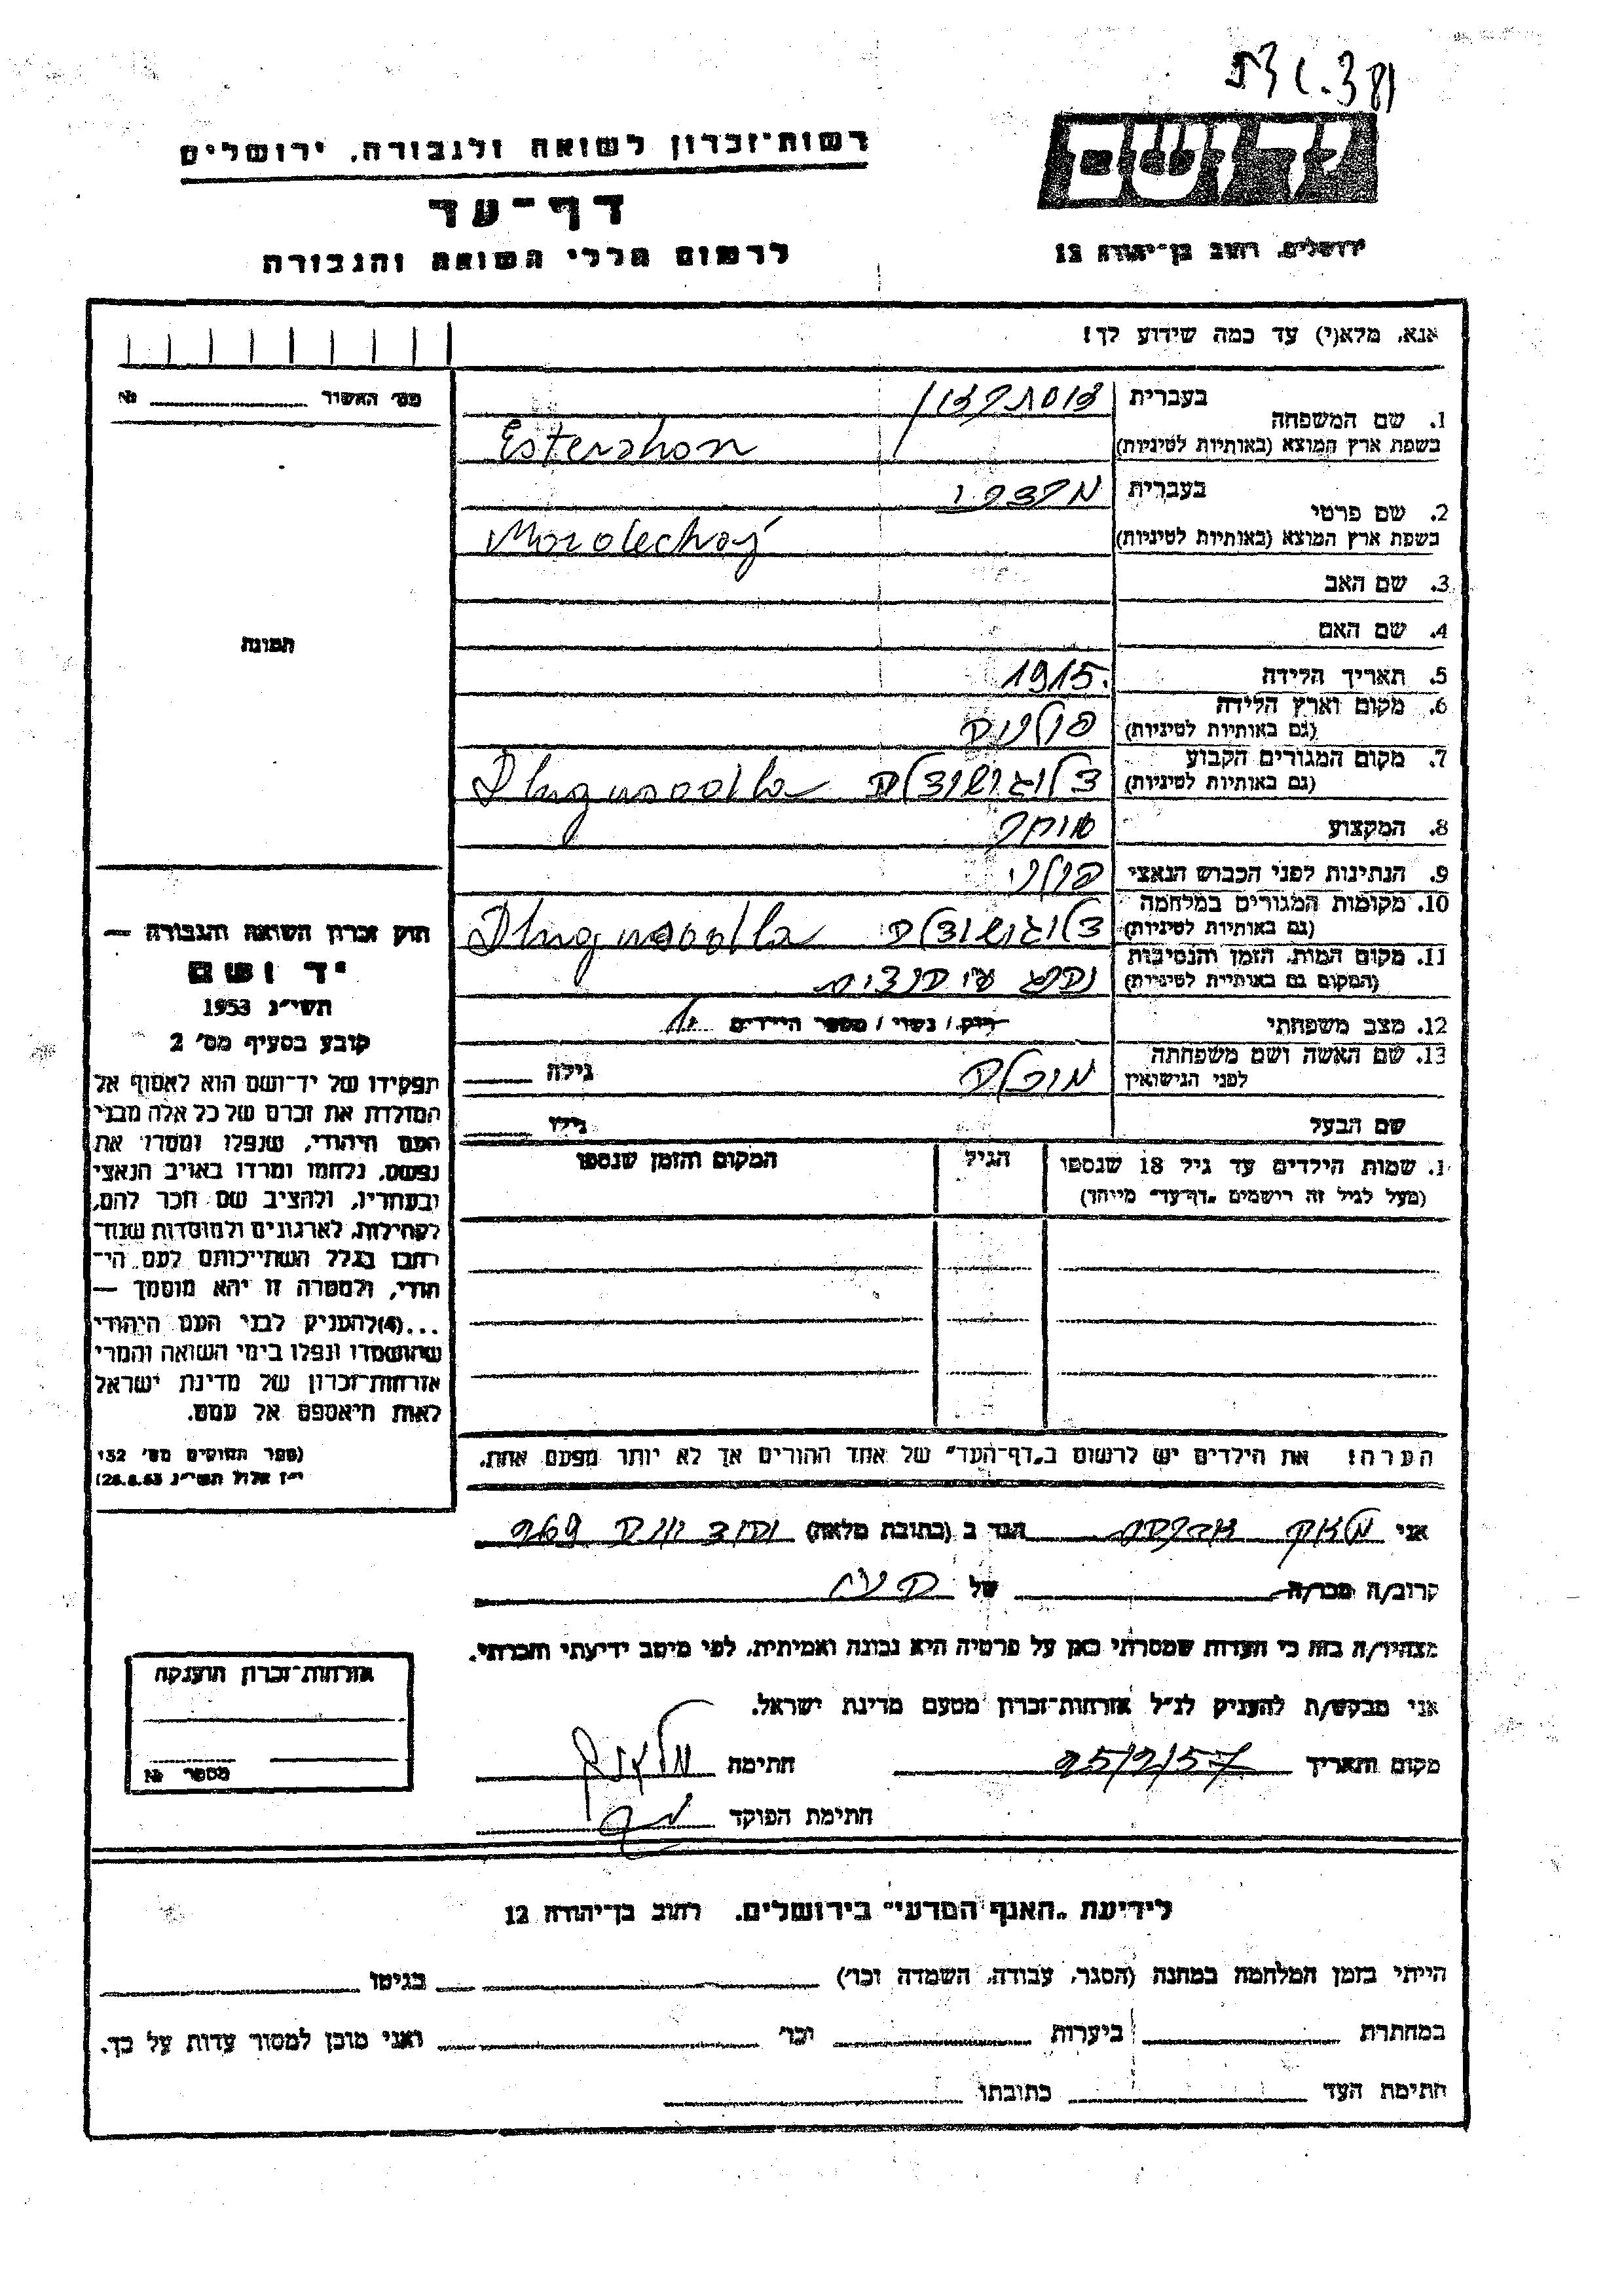 רשות־זכרון לשואה ולגבורה, ירושלים
דף־עד
לרשום חללי השואה והגבורה
יד ושם
ירושלים, רחוב בן־יהודה 12
אנא, מלא(י) עד כמה שידוע לך!
מס׳ האשור № 
1. שם המשפחה
בעברית
בשפת ארץ המוצא (באותיות לטיניות) Esterzhon
2. שם פרטי
בעברית מרדכי
בשפת ארץ המוצא (באותיות לטיניות) Mordechaj
3. שם האב
4. שם האם
5. תאריך הלידה 1915
6. מקום וארץ הלידה
(גם באותיות לטיניות) פולניה
7. מקום המגורים הקבוע
(גם באותיות לטיניות) דלוגושודלה
8. המקצוע סוחר
9. הנתינות לפני הכבוש הנאצי פולני
10. מקומות המגורים במלחמה
(גם באותיות לטיניות) דלוגושודלה
11. מקום המות, הזמן והנסיבות
(המקום גם באותיות לטיניות)
12. מצב משפחתי רווק / נשוי / מספר הילדים
13. שם האשה ושם משפחתה
לפני הנישואין גילה
שם הבעל גילו
1. שמות הילדים עד גיל 18 שנספו הגיל המקום והזמן שנספו
(מעל לגיל זה רישמים „דף־עד״ מיוחד)
הערה! את הילדים יש לרשום ב„דף־העד״ של אחד ההורים אך לא יותר מפעם אחת.
תמונה
חוק זכרון השואה והגבורה —
יד ושם
תשי״ג 1953
קובע בסעיף מס׳ 2
תפקידו של יד־ושם הוא לאסוף אל
המולדת את זכרם של כל אלה מבני
העם היהודי, שנפלו ומסרו את
נפשם, נלחמו ומרדו באויב הנאצי
ובעוזריו, ולהציב שם וזכר להם,
לקהילות, לארגונים ולמוסדות שנח־
רבו בגלל השתייכותם לעם הי־
הודי, ולמטרה זו יהא מוסמך —
...(4)להעניק לבני העם היהודי
שהושמדו ונפלו בימי השואה והמרי
אזרחות־זכרון של מדינת ישראל
לאות היאספם אל עמם.
(ספר החוקים מס׳ 132
י״ז אלול תשי״ג 28.8.53)
אני אברהם הגר ב (כתובת מלאה) 969
קרוב/ה מכר/ה של
מצהיר/ה בזה כי העדות שמסרתי כאן על פרטיה היא נכונה ואמיתית, לפי מיטב ידיעתי והכרתי.
אני מבקש/ת להעניק לנ״ל אזרחות־זכרון מטעם מדינת ישראל.
מקום ותאריך 25/2/57 חתימה
חתימת הפוקד
אזרחות־זכרון הוענקה
מספר №
לידיעת „האגף המדעי״ בירושלים, רחוב בן־יהודה 12
הייתי בזמן המלחמה במחנה (הסגר, עבודה, השמדה וכו׳) בגיטו
במחתרת ביערות וכו׳ ואני מוכן למסור עדות על כך.
חתימת העד כתובתו